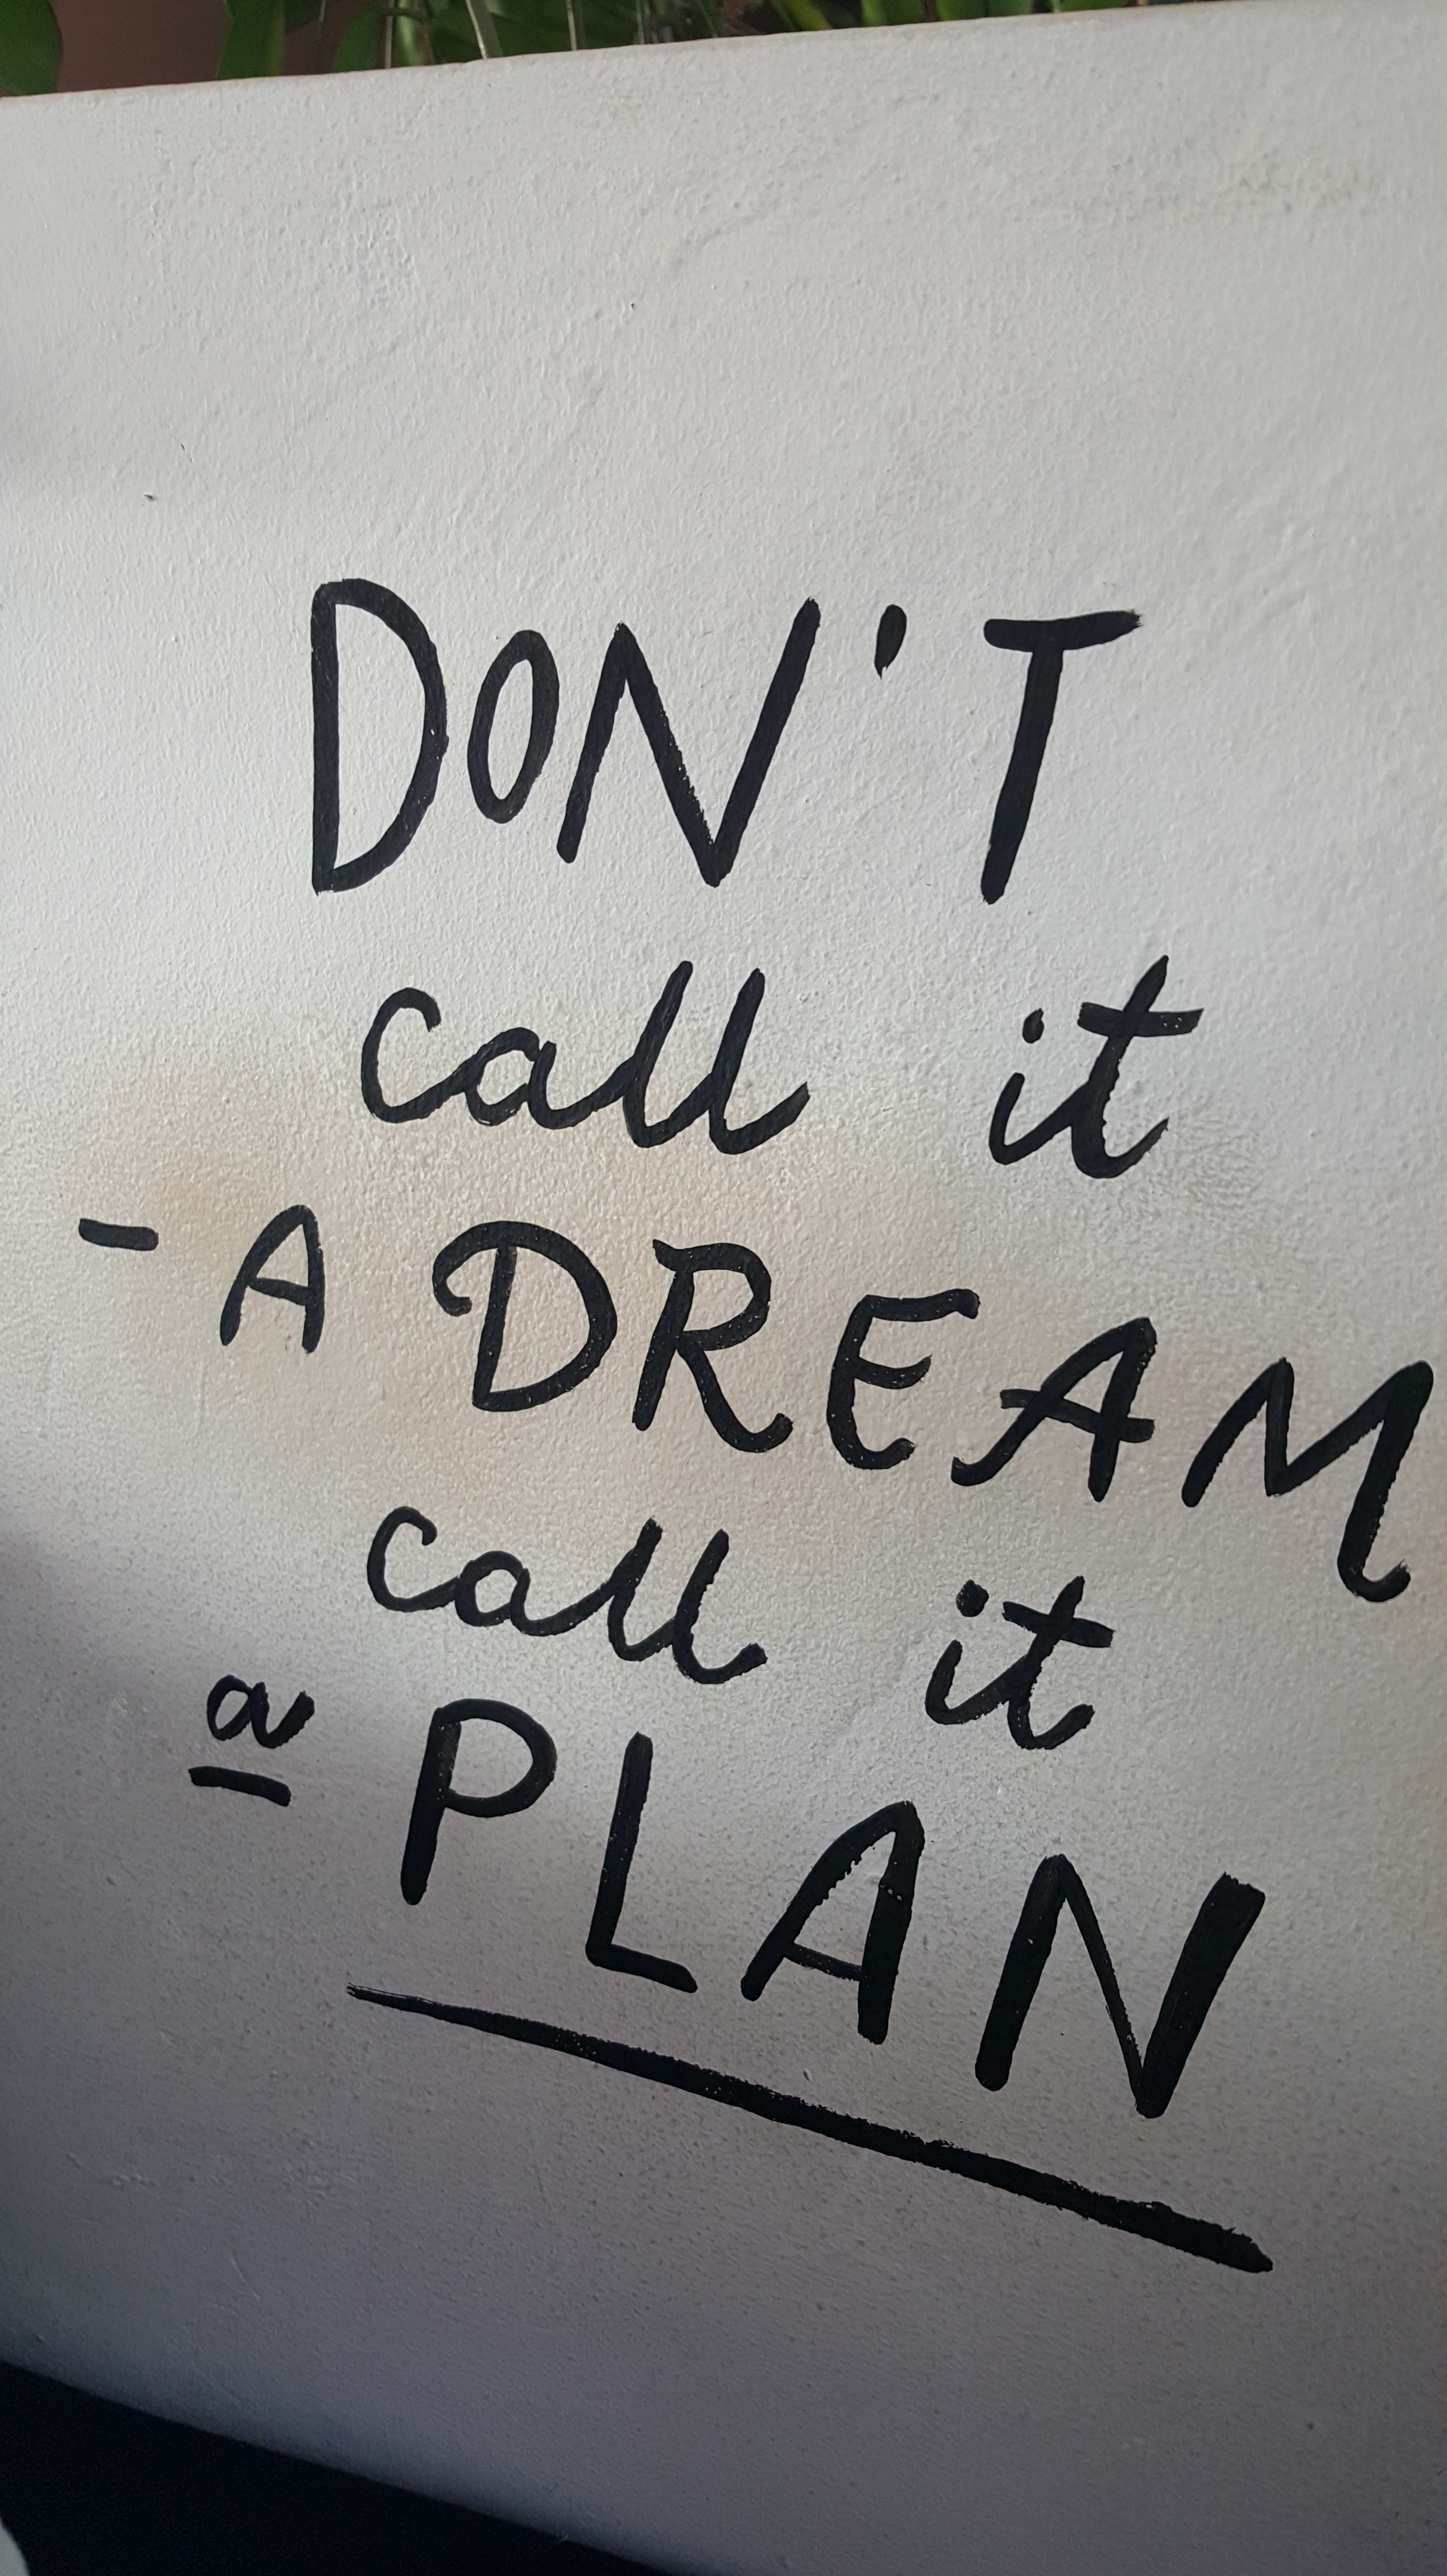 DON'T
call it
- A DREAM
call it
a PLAN